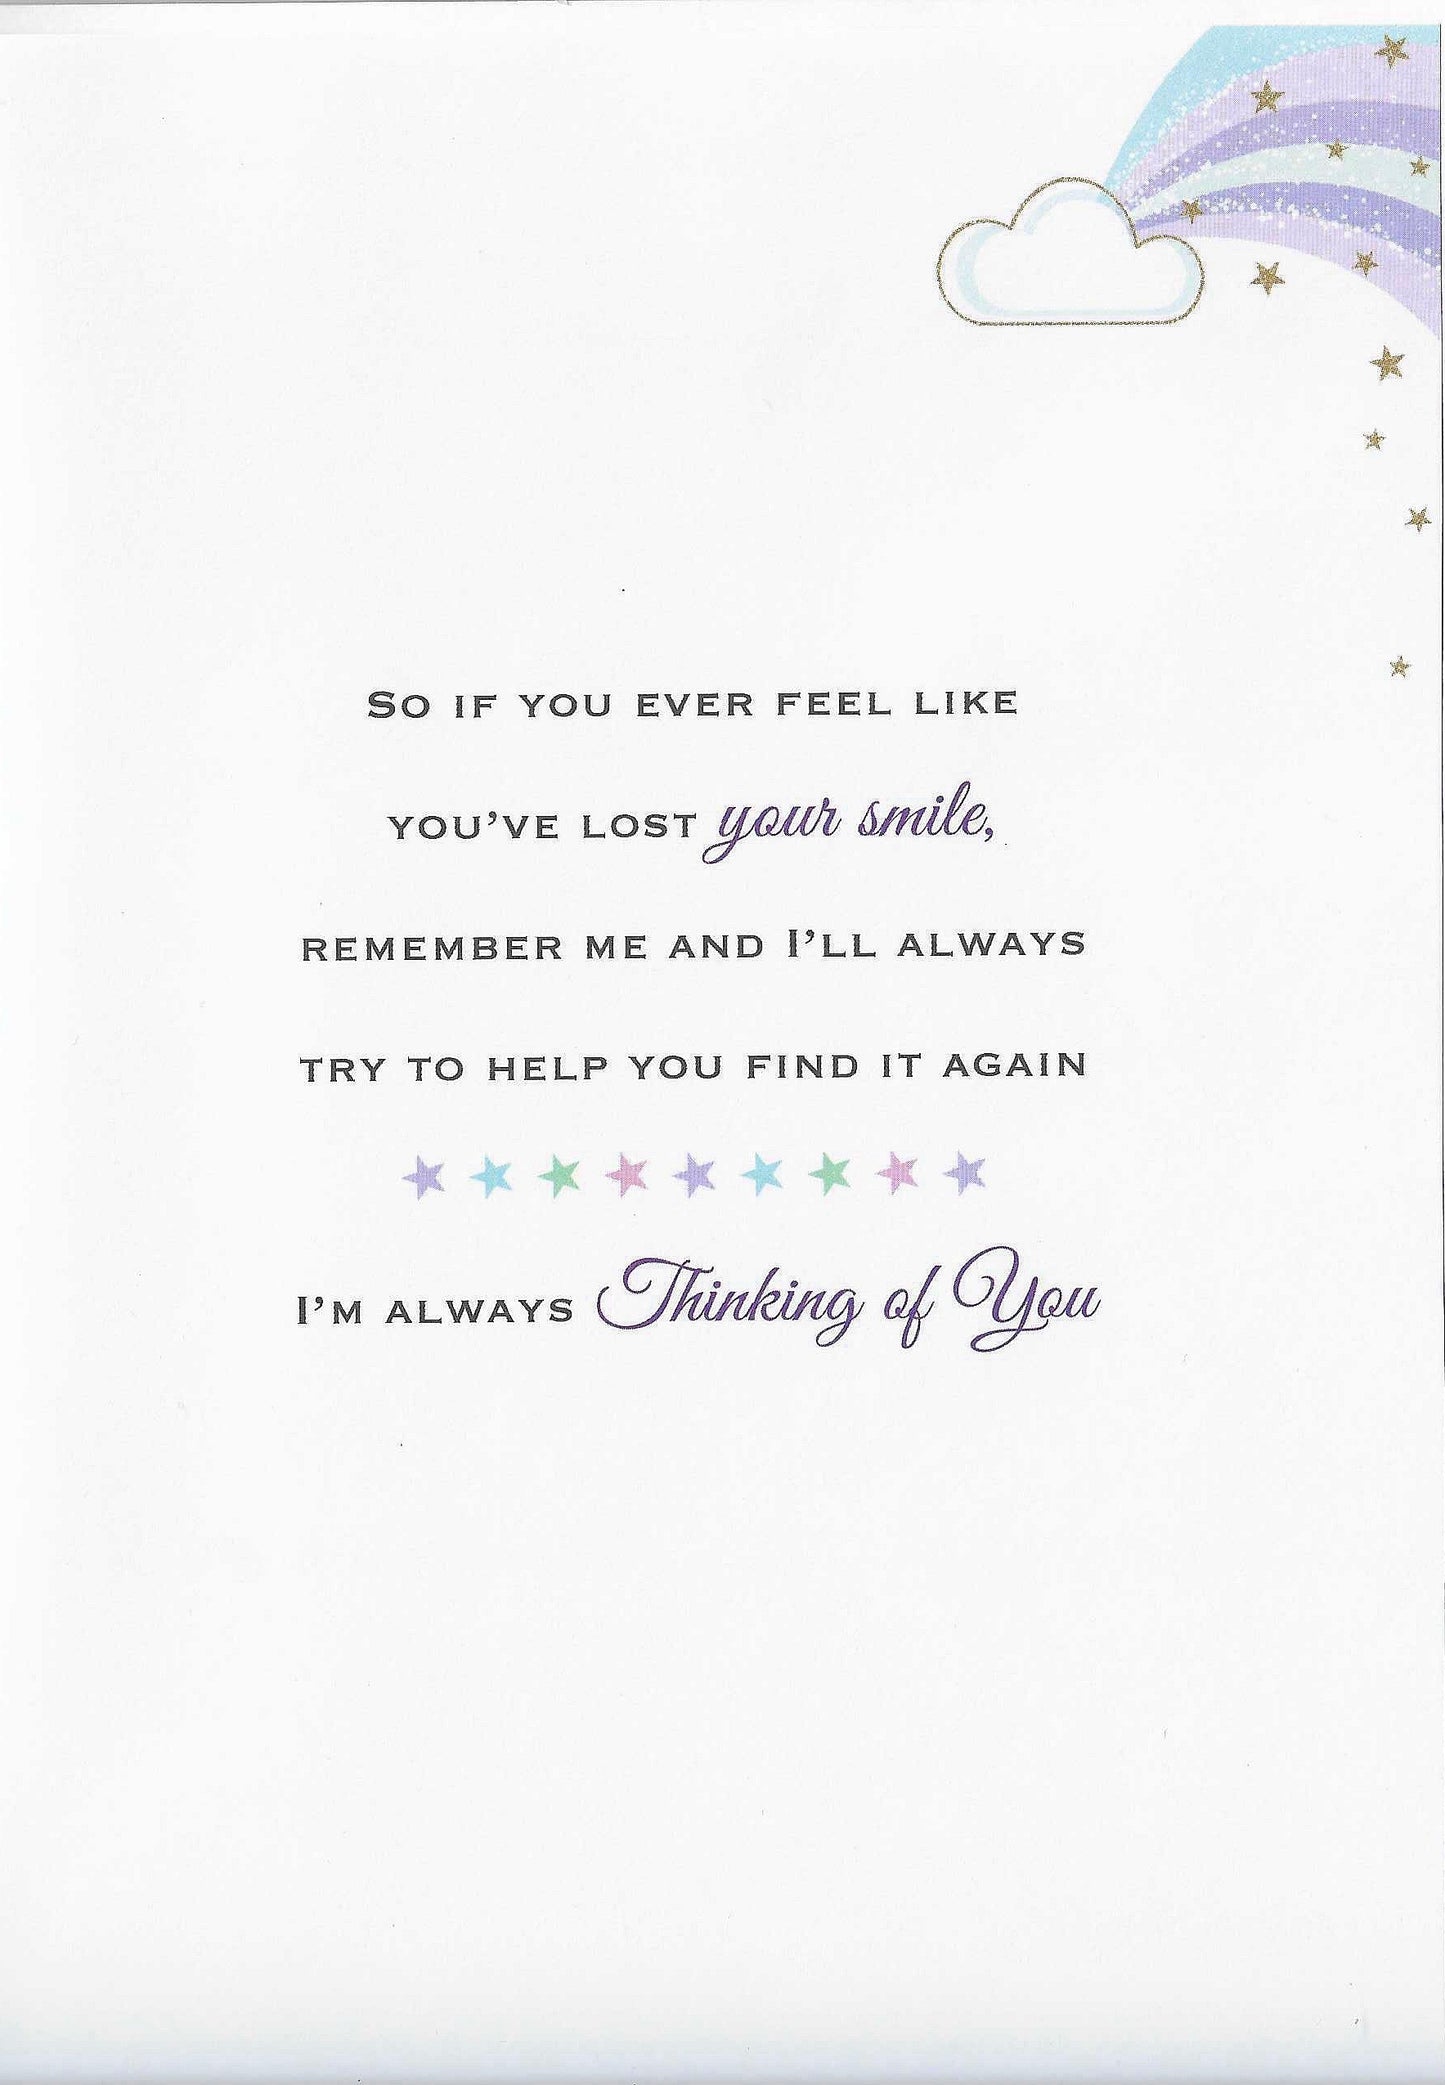 So if you ever feel like
you've lost your smile,
remember me and I'll always
try to help you find it again
I'm always Thinking of You